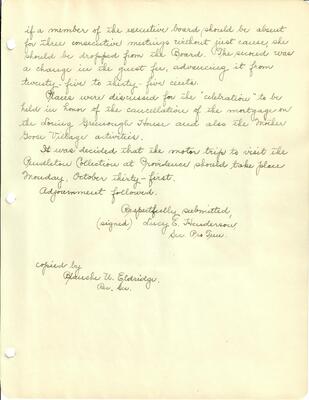 if a member of the executive board should be absent
for three consecutive meetings without just cause, she
should be dropped from the Board. The second was
a change in the guest fee, advancing it from
twenty-five to thirty-five cents.
Places were discussed for the "celebration" to be
held in honor of the cancellation of the mortgage on
the Loring Greenough House and also the Mother
Goose Village activities.
It was decided that the motor trip to visit the
Pendleton Collection at Providence should take place
Monday, October thirty-first.
Adjournment followed.
Respectfully submitted,
(signed) Lucy E. Henderson
Sec Pro Tem
copied by
Blanche U. Eldridge,
Rec. Sec.